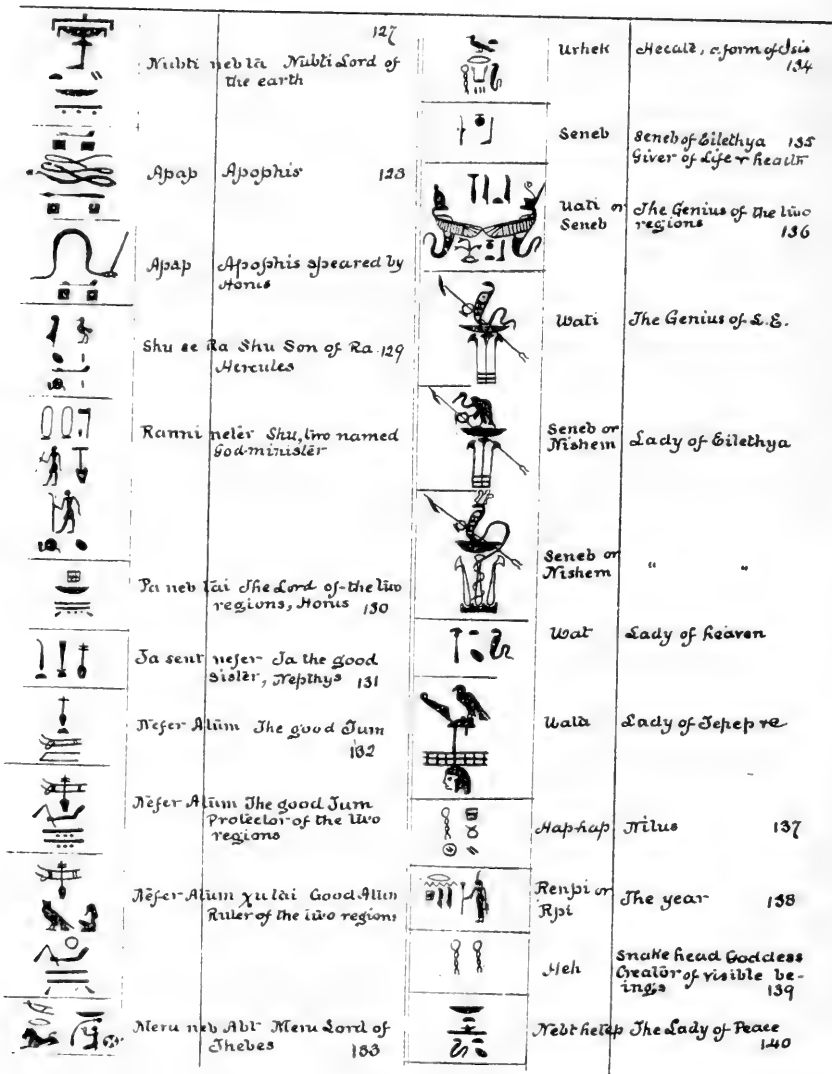 127
Nubti neb ta Nubti Lord of
the earth
Apap Apophis 123
Apap Apophis speared by
Horus
Shu se Ra Shu Son of Ra 129
Hercules
Ranni neter Shu, two named
God-minister
Pa neb tai The Lord of the two
regions, Horus 130
Ta sent nefer Ta the good
Sister, Nepthys 131
Nefer Atum The good Tum
132
Nefer Atum The good Tum
Protector of the two
regions
Nefer Atum χu tai Good Atum
Ruler of the two regions
Meru neb Abt Meru Lord of
Thebes 133
Urhek Hecate, a form of Isis
134
Seneb Seneb of Eilethya 135
Giver of Life & health
Uati or The Genius of the two
Seneb regions 136
Wati The Genius of L.E.
Seneb or Lady of Eilethya
Nishem
Seneb or " "
Nishem
Wat Lady of heaven
Uata Lady of Tepep re
Hap-hap Nilus 137
Renpi or The year 138
Rpi
Meh Snake head Goddess
Creator of visible be-
ings 139
Nebt hetep The Lady of Peace
140